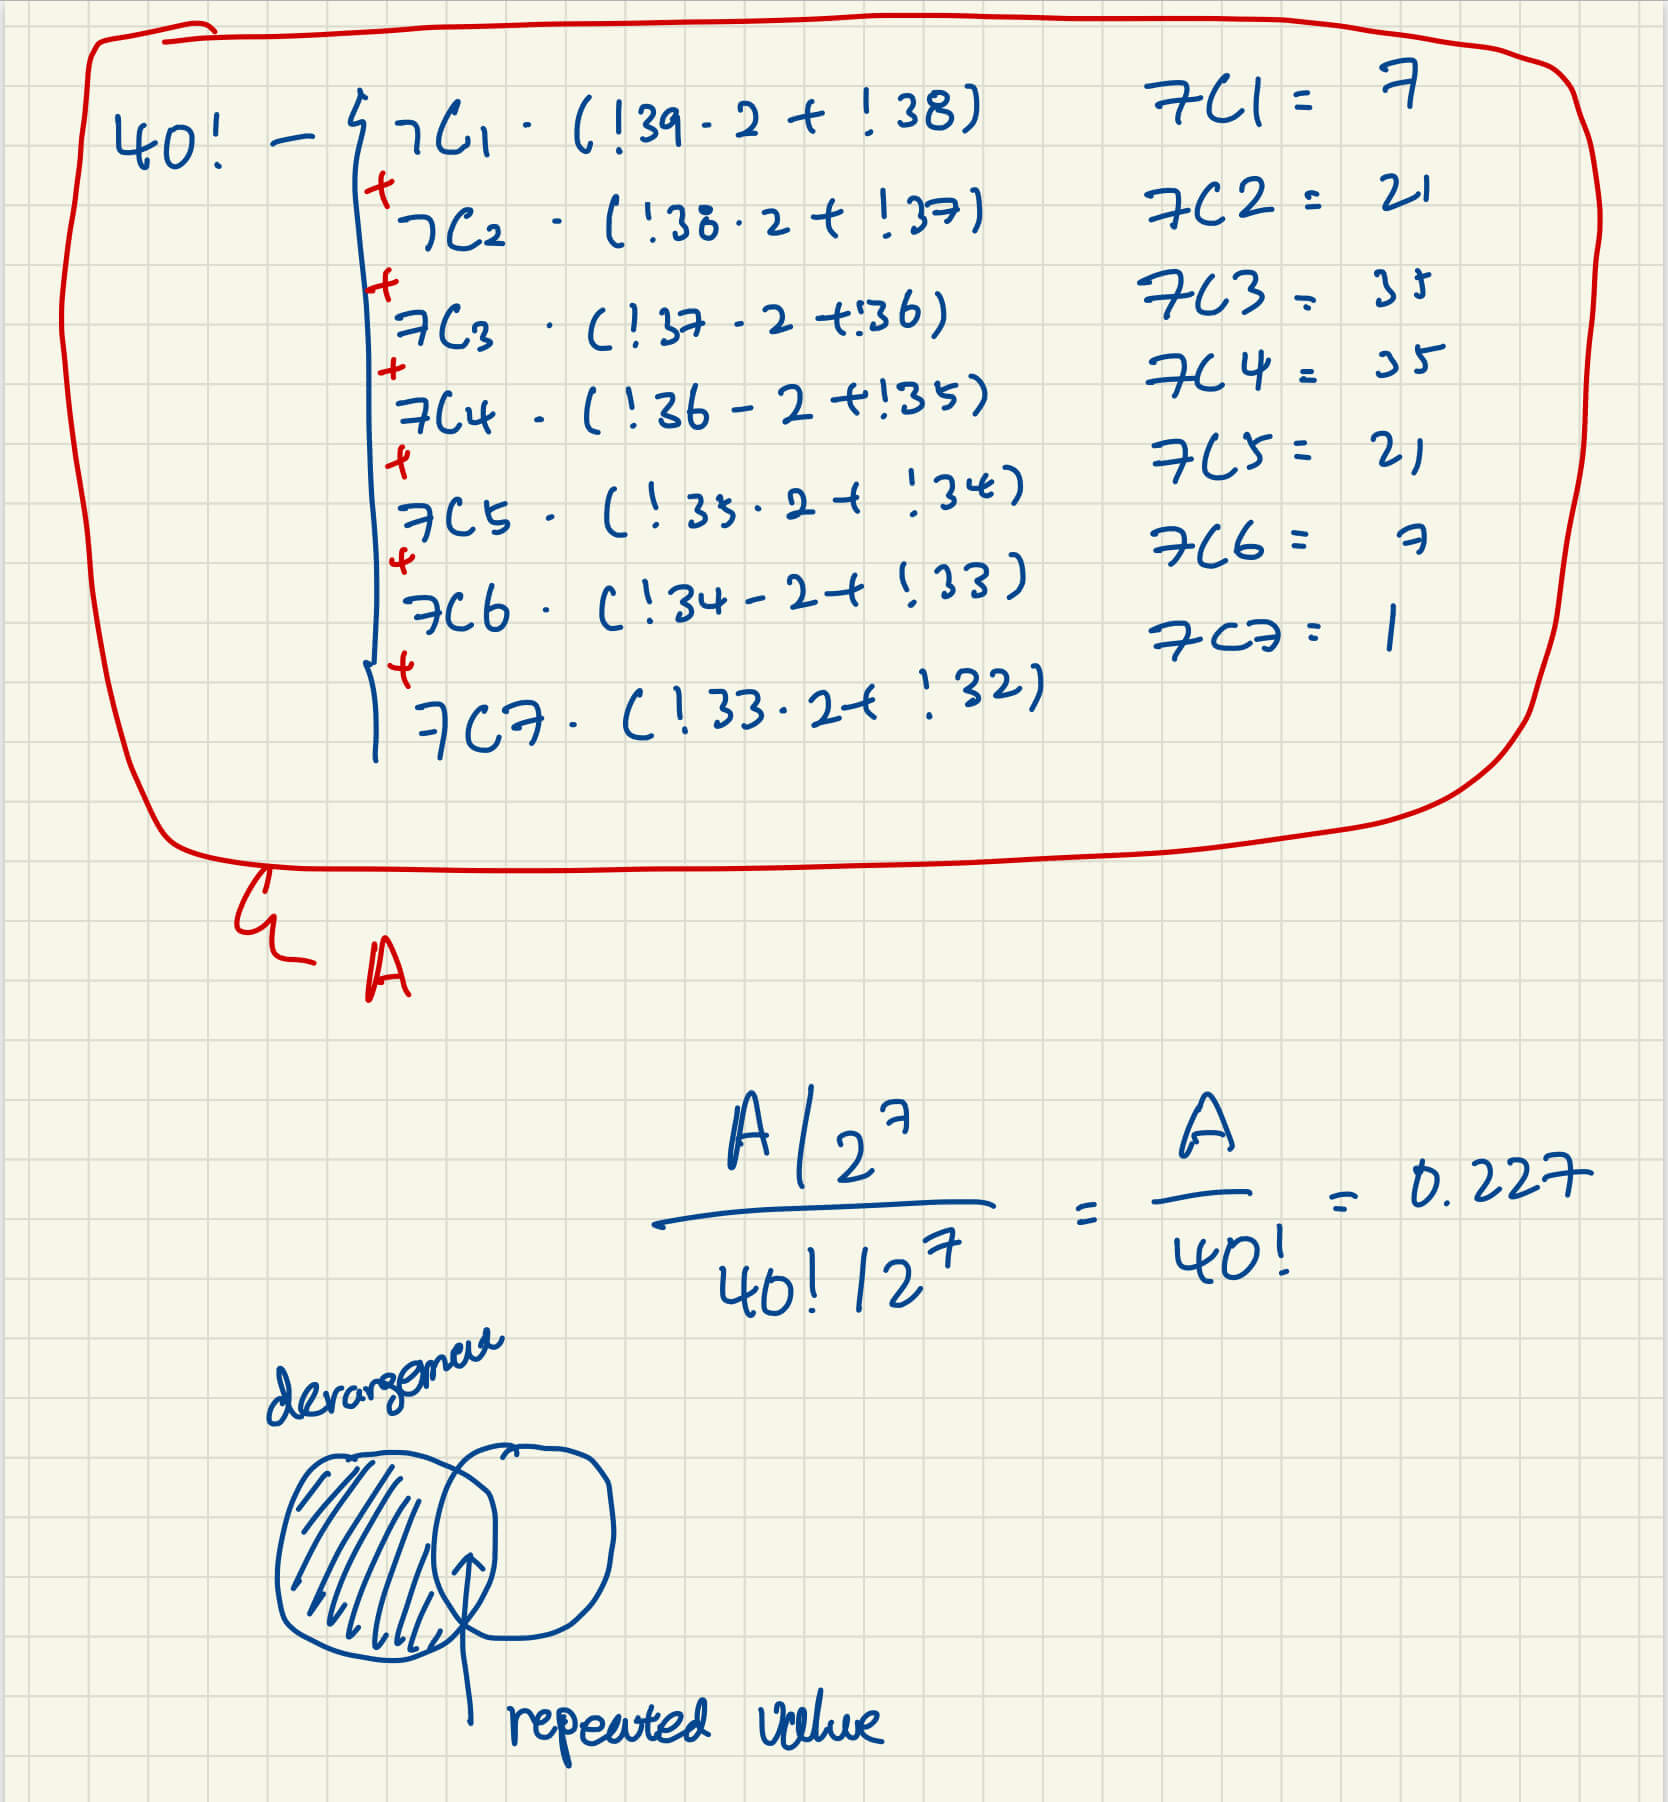 40! - { 7C1 · (!39 · 2 + !38)
+ 7C2 · (!38 · 2 + !37)
+ 7C3 · (!37 · 2 + !36)
+ 7C4 · (!36 - 2 + !35)
+ 7C5 · (!35 · 2 + !34)
+ 7C6 · (!34 - 2 + !33)
+ 7C7 · (!33 · 2 + !32)
7C1 = 7
7C2 = 21
7C3 = 35
7C4 = 35
7C5 = 21
7C6 = 7
7C7 = 1
A
A/2^7 / 40!/2^7 = A / 40! = 0.227
derangement
repeated value